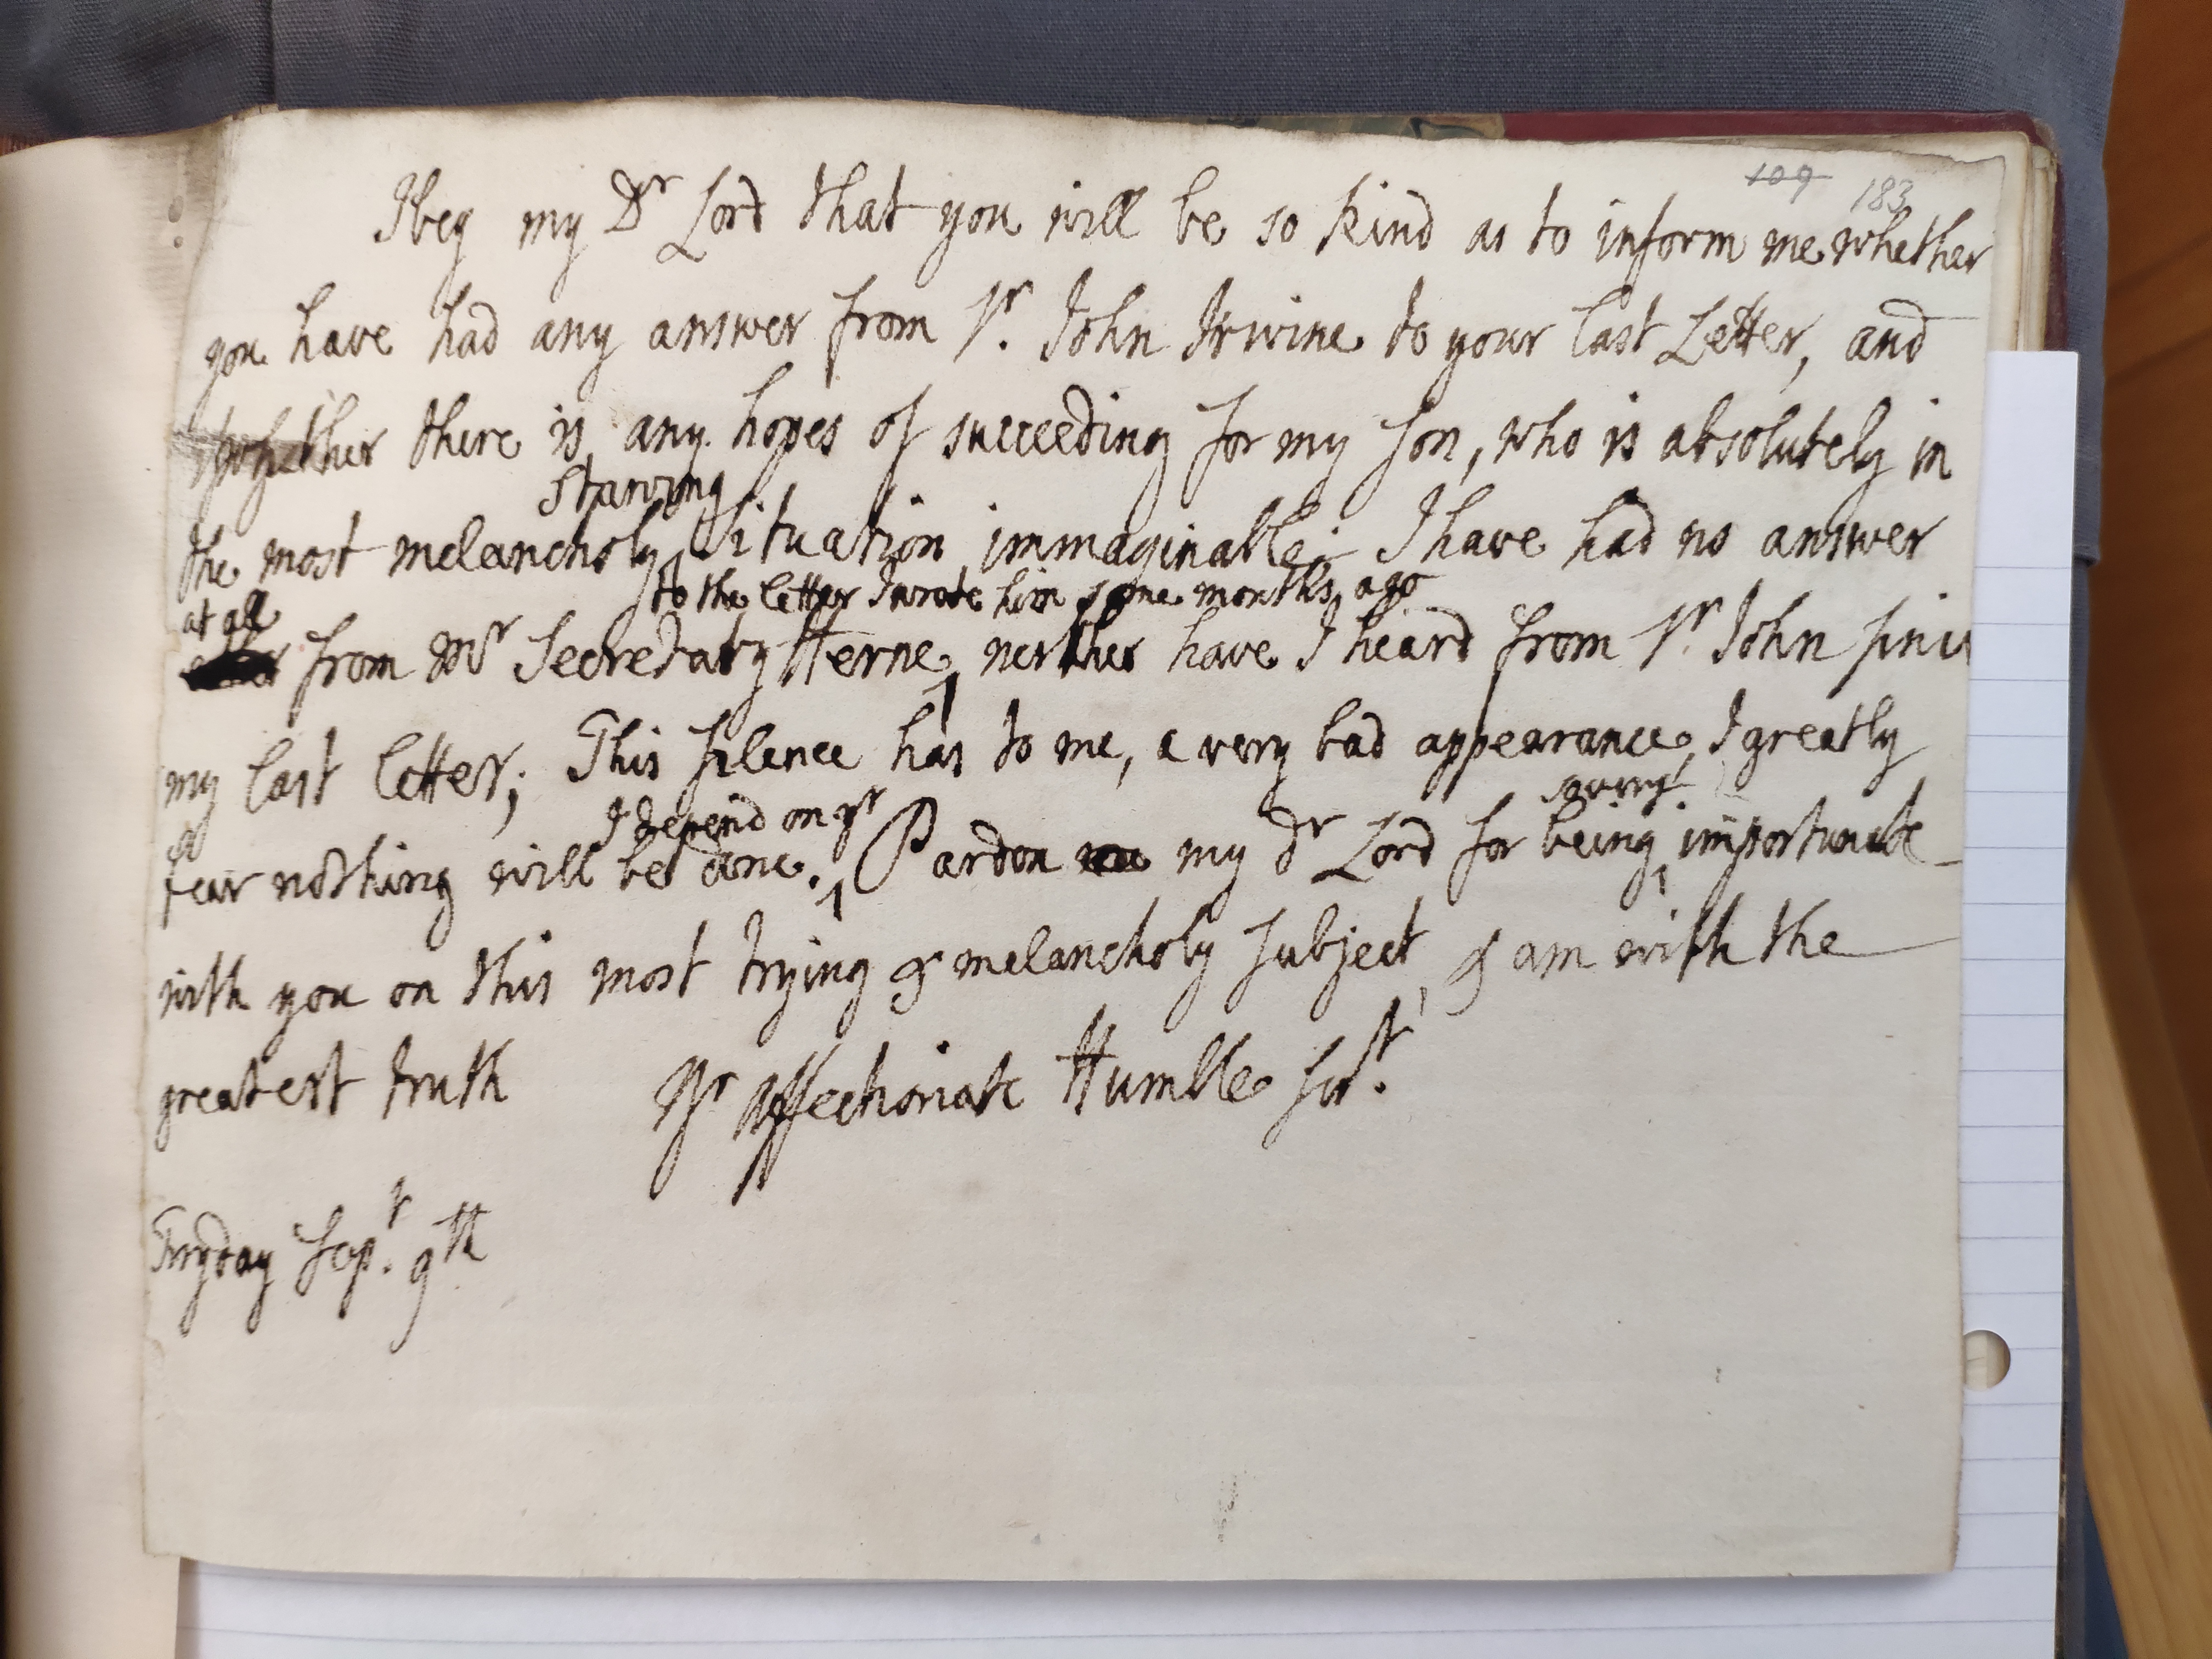 109 183
I beg my Dr Lord that you will be so kind as to inform me whether
you have had any answer from Sr. John Irwine to your last Letter, and
whether there is any hopes of succeeding for my son, who is absolutely in
starving
the most melancholy situation immaginable; I have had no answer
at all to the letter I wrote him some months ago
from Mr Secretary Herne, neither have I heard from Sr. John sin
my last letter; This silence has to me, a very bad appearance, I greatly
I depend on yr
fear nothing will be done. Pardon my dr Lord for being importunate
with you on this most trying & melancholy subject, & am with the
greatest truth Yr Affectionate Humble Sert.
Fryday Sept. 9th